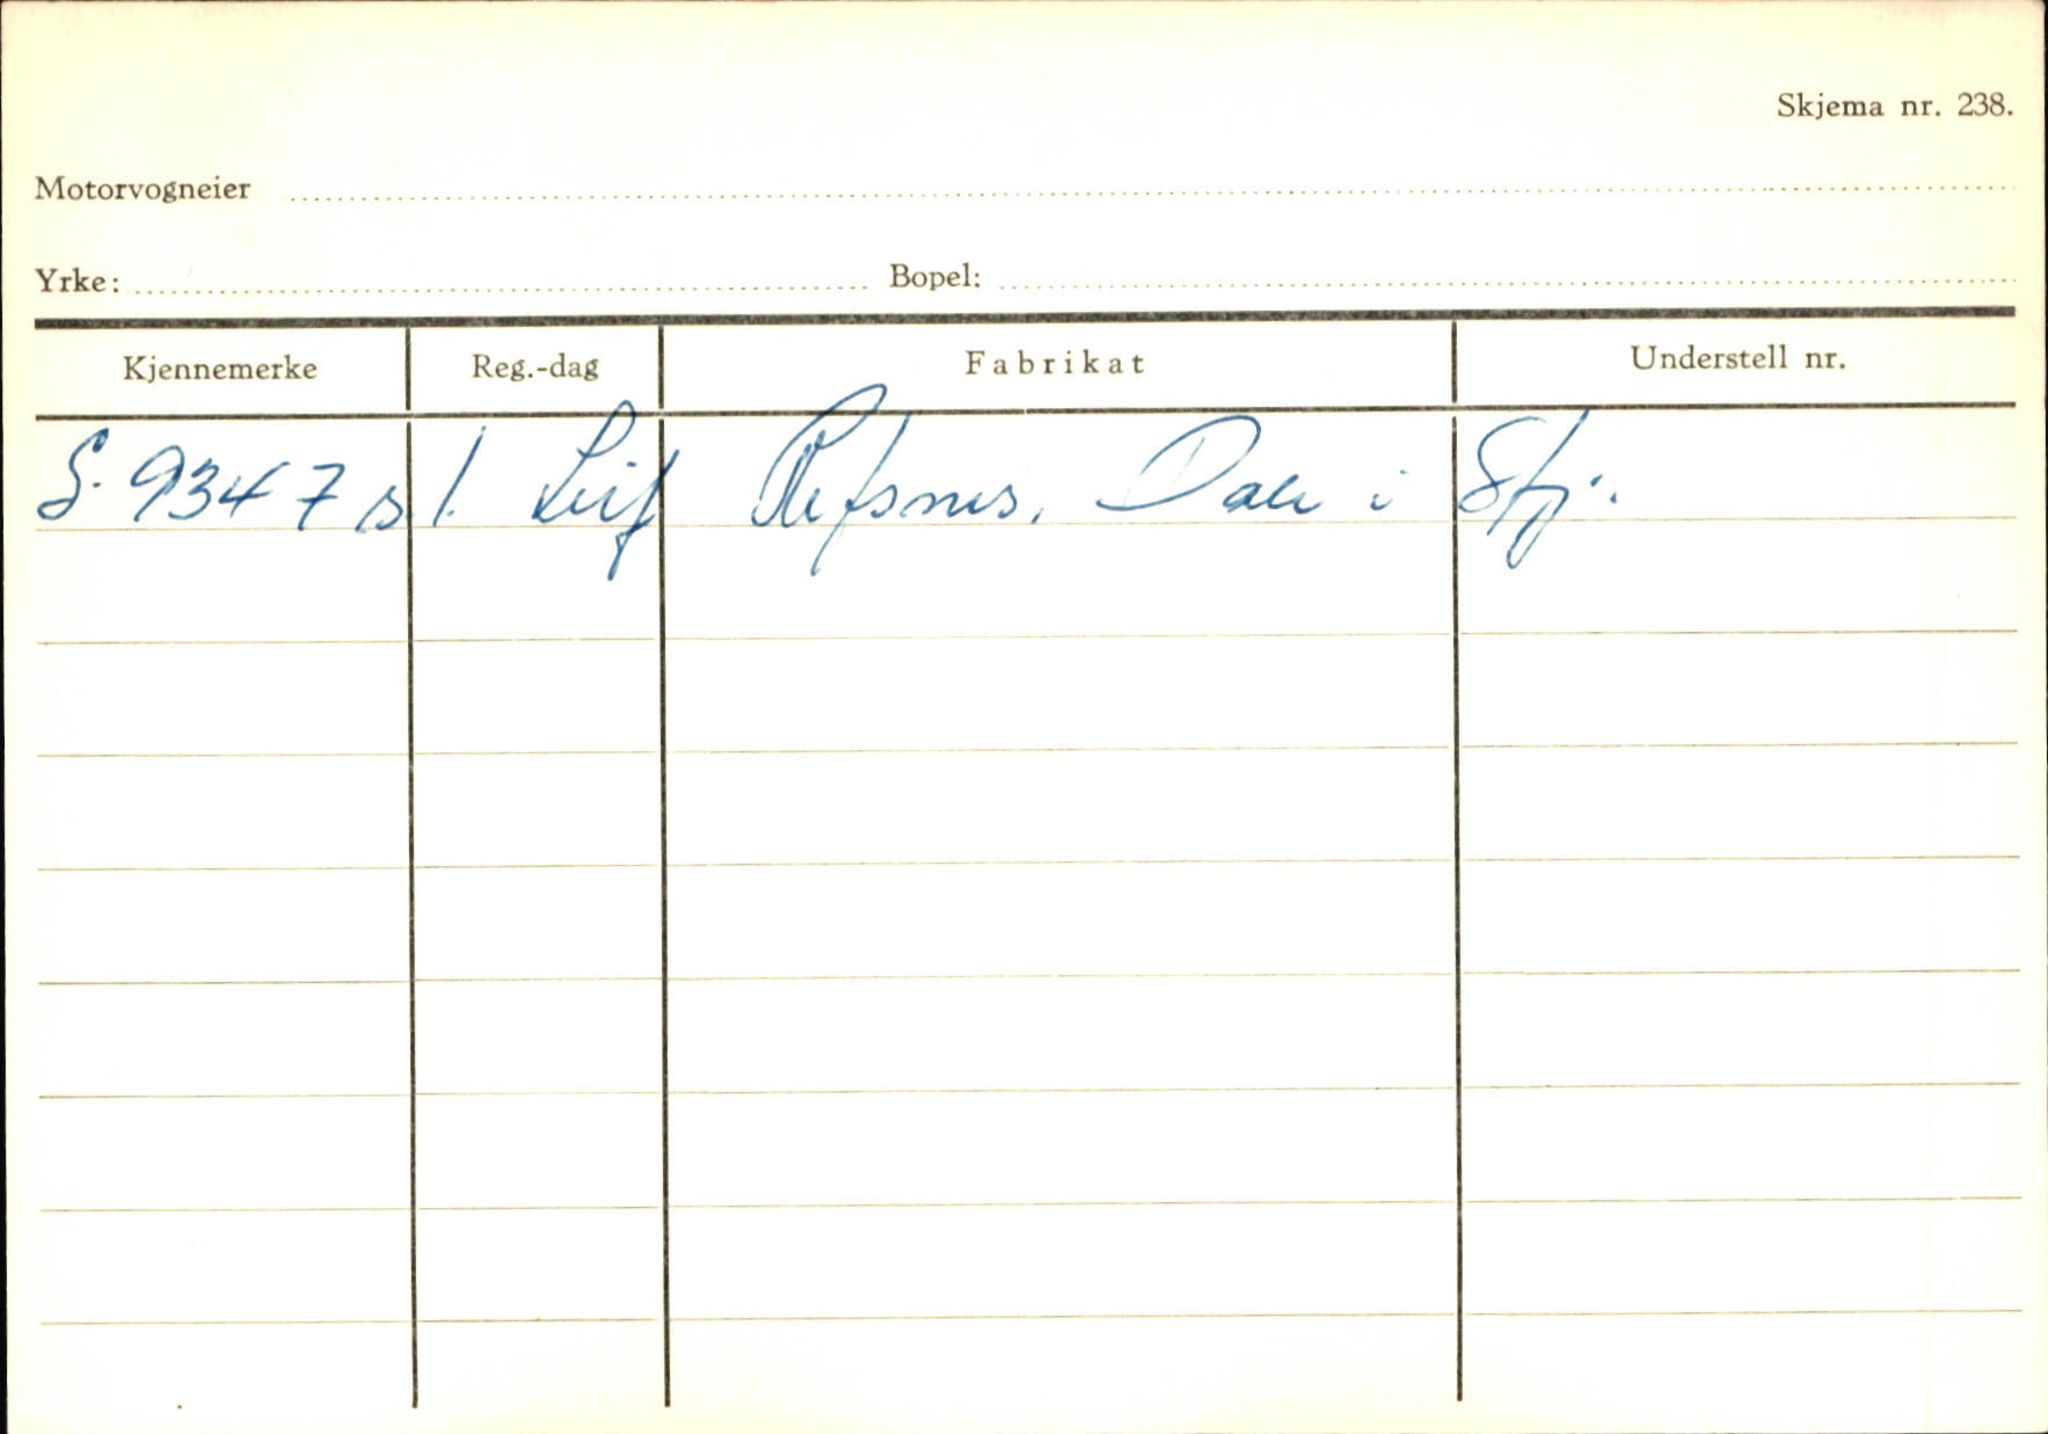 Skjema nr. 238.
Motorvogneier
Yrke: Bopel:
Kjennemerke Reg.-dag Fabrikat Understell nr.
S. 9347 s/. Leif Refsnes, Dale i Sfj.